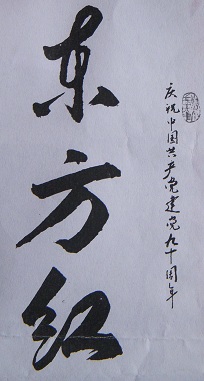 东方红
庆祝中国共产党建党九十周年